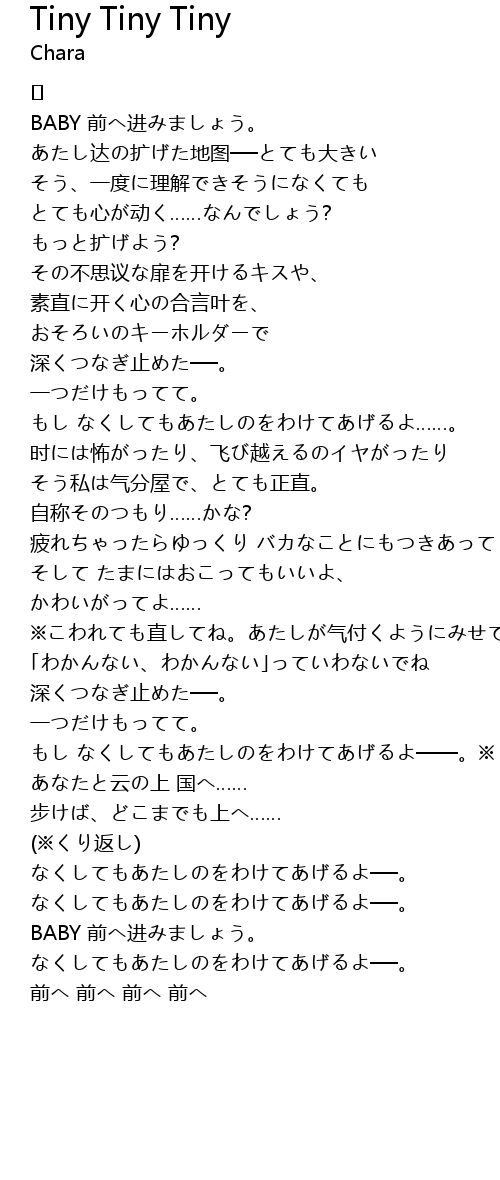 Tiny Tiny Tiny
Chara
[]
BABY 前へ进みましょう。
あたし达の扩げた地图──とても大きい
そう、一度に理解できそうになくても
とても心が动く……なんでしょう?
もっと扩げよう?
その不思议な扉を开けるキスや、
素直に开く心の合言叶を、
おそろいのキーホルダーで
深くつなぎ止めた──。
一つだけもってて。
もし なくしてもあたしのをわけてあげるよ……。
时には怖がったり、飞び越えるのイヤがったり
そう私は气分屋で、とても正直。
自称そのつもり……かな?
疲れちゃったらゆっくり バカなことにもつきあって
そして たまにはおこってもいいよ、
かわいがってよ……
※こわれても直してね。あたしが气付くようにみせて
｢わかんない、わかんない｣っていわないでね
深くつなぎ止めた──。
一つだけもってて。
もし なくしてもあたしのをわけてあげるよ───。※
あなたと云の上 国へ……
歩けば、どこまでも上へ……
(※くり返し)
なくしてもあたしのをわけてあげるよ──。
なくしてもあたしのをわけてあげるよ──。
BABY 前へ进みましょう。
なくしてもあたしのをわけてあげるよ──。
前へ 前へ 前へ 前へ